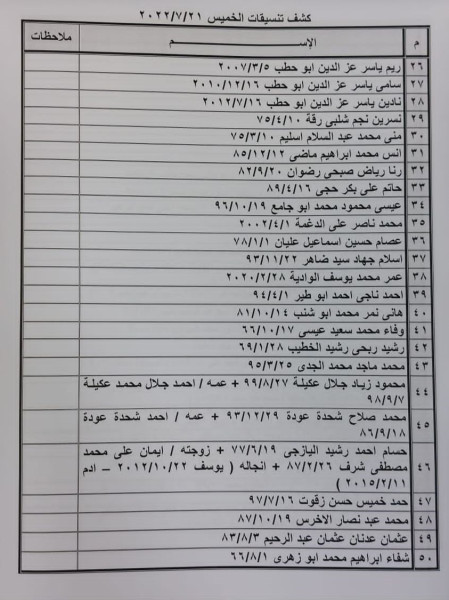 كشف تنسيقات الخميس ٢٠٢٢/٧/٢١
م الإســـــــم ملاحظات
٢٦ ريم ياسر عز الدين ابو حطب ٢٠٠٧/٣/٥
٢٧ سامى ياسر عز الدين ابو حطب ٢٠١٠/١٢/١٦
٢٨ نادين ياسر عز الدين ابو حطب ٢٠١٢/٧/١٦
٢٩ نسرين نجم شلبى رقة ٧٥/٤/١٠
٣٠ منى محمد عبد السلام اسليم ٧٥/٣/١٠
٣١ انس محمد ابراهيم ماضى ٨٥/١٢/١٢
٣٢ رنا رياض صبحى رضوان ٨٢/٩/٢٠
٣٣ حاتم على بكر حجى ٨٩/٤/١٦
٣٤ عيسى محمود محمد ابو جامع ٩٦/١٠/١٩
٣٥ محمد ناصر على الدغمة ٢٠٠٢/٤/١
٣٦ عصام حسين اسماعيل عليان ٧٨/١/١
٣٧ اسلام جهاد سيد ضاهر ٩٣/١١/٢٢
٣٨ عمر محمد يوسف الوادية ٢٠٢٠/٢/٢٨
٣٩ احمد ناجى احمد ابو طير ٩٤/٤/١
٤٠ هانى نمر محمد ابو شنب ٨١/١٠/١٤
٤١ وفاء محمد سعيد عيسى ٦٦/١٠/١٧
٤٢ رشيد ربحى رشيد الخطيب ٦٩/١/٢٨
٤٣ محمد ماجد محمد الجدى ٩٥/٣/٢٥
٤٤ محمود زياد جلال عكيلة ٩٩/٨/٢٧ + عمه / احمد جلال محمد عكيلة
٩٨/٩/٧
٤٥ محمد صلاح شحدة عودة ٩٣/١٢/٢٩ + عمه / احمد شحدة عودة
٨٦/٩/١٨
٤٦ حسام احمد رشيد اليازجى ٧٧/٦/١٩ + زوجته / ايمان على محمد
مصطفى شرف ٨٧/٢/٢٦ + انجاله ( يوسف ٢٠١٢/١٠/٢٢ – ادم
٢٠١٥/٢/١١ )
٤٧ حمد خميس حسن زقوت ٩٧/٧/١٦
٤٨ محمد عبد نصار الاخرس ٨٧/١٠/١٩
٤٩ عثمان عدنان عثمان عبد الرحيم ٨٣/٨/٣
٥٠ شفاء ابراهيم محمد ابو زهرى ٦٦/٨/١